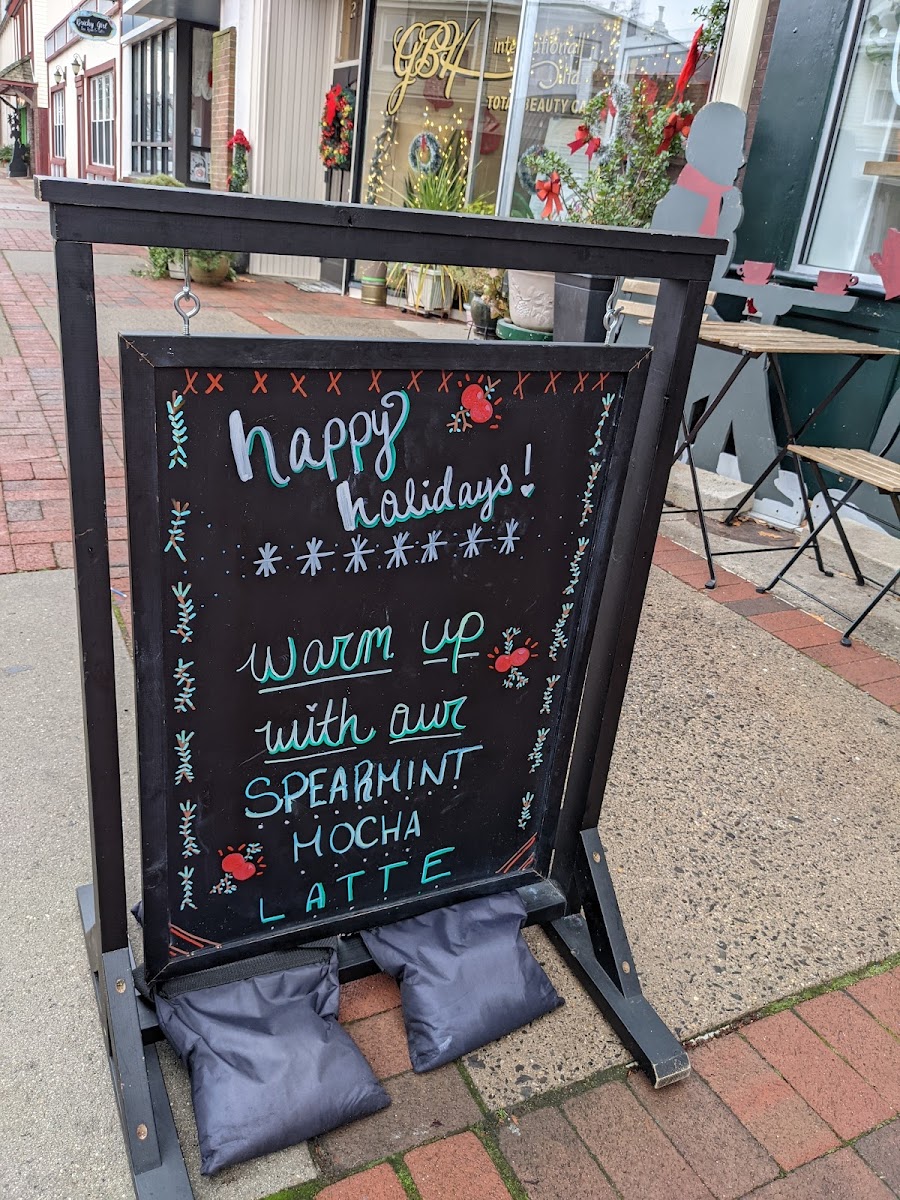 GBH international
TOTAL BEAUTY CA
happy
holidays!
warm up
with our
SPEARMINT
MOCHA
LATTE